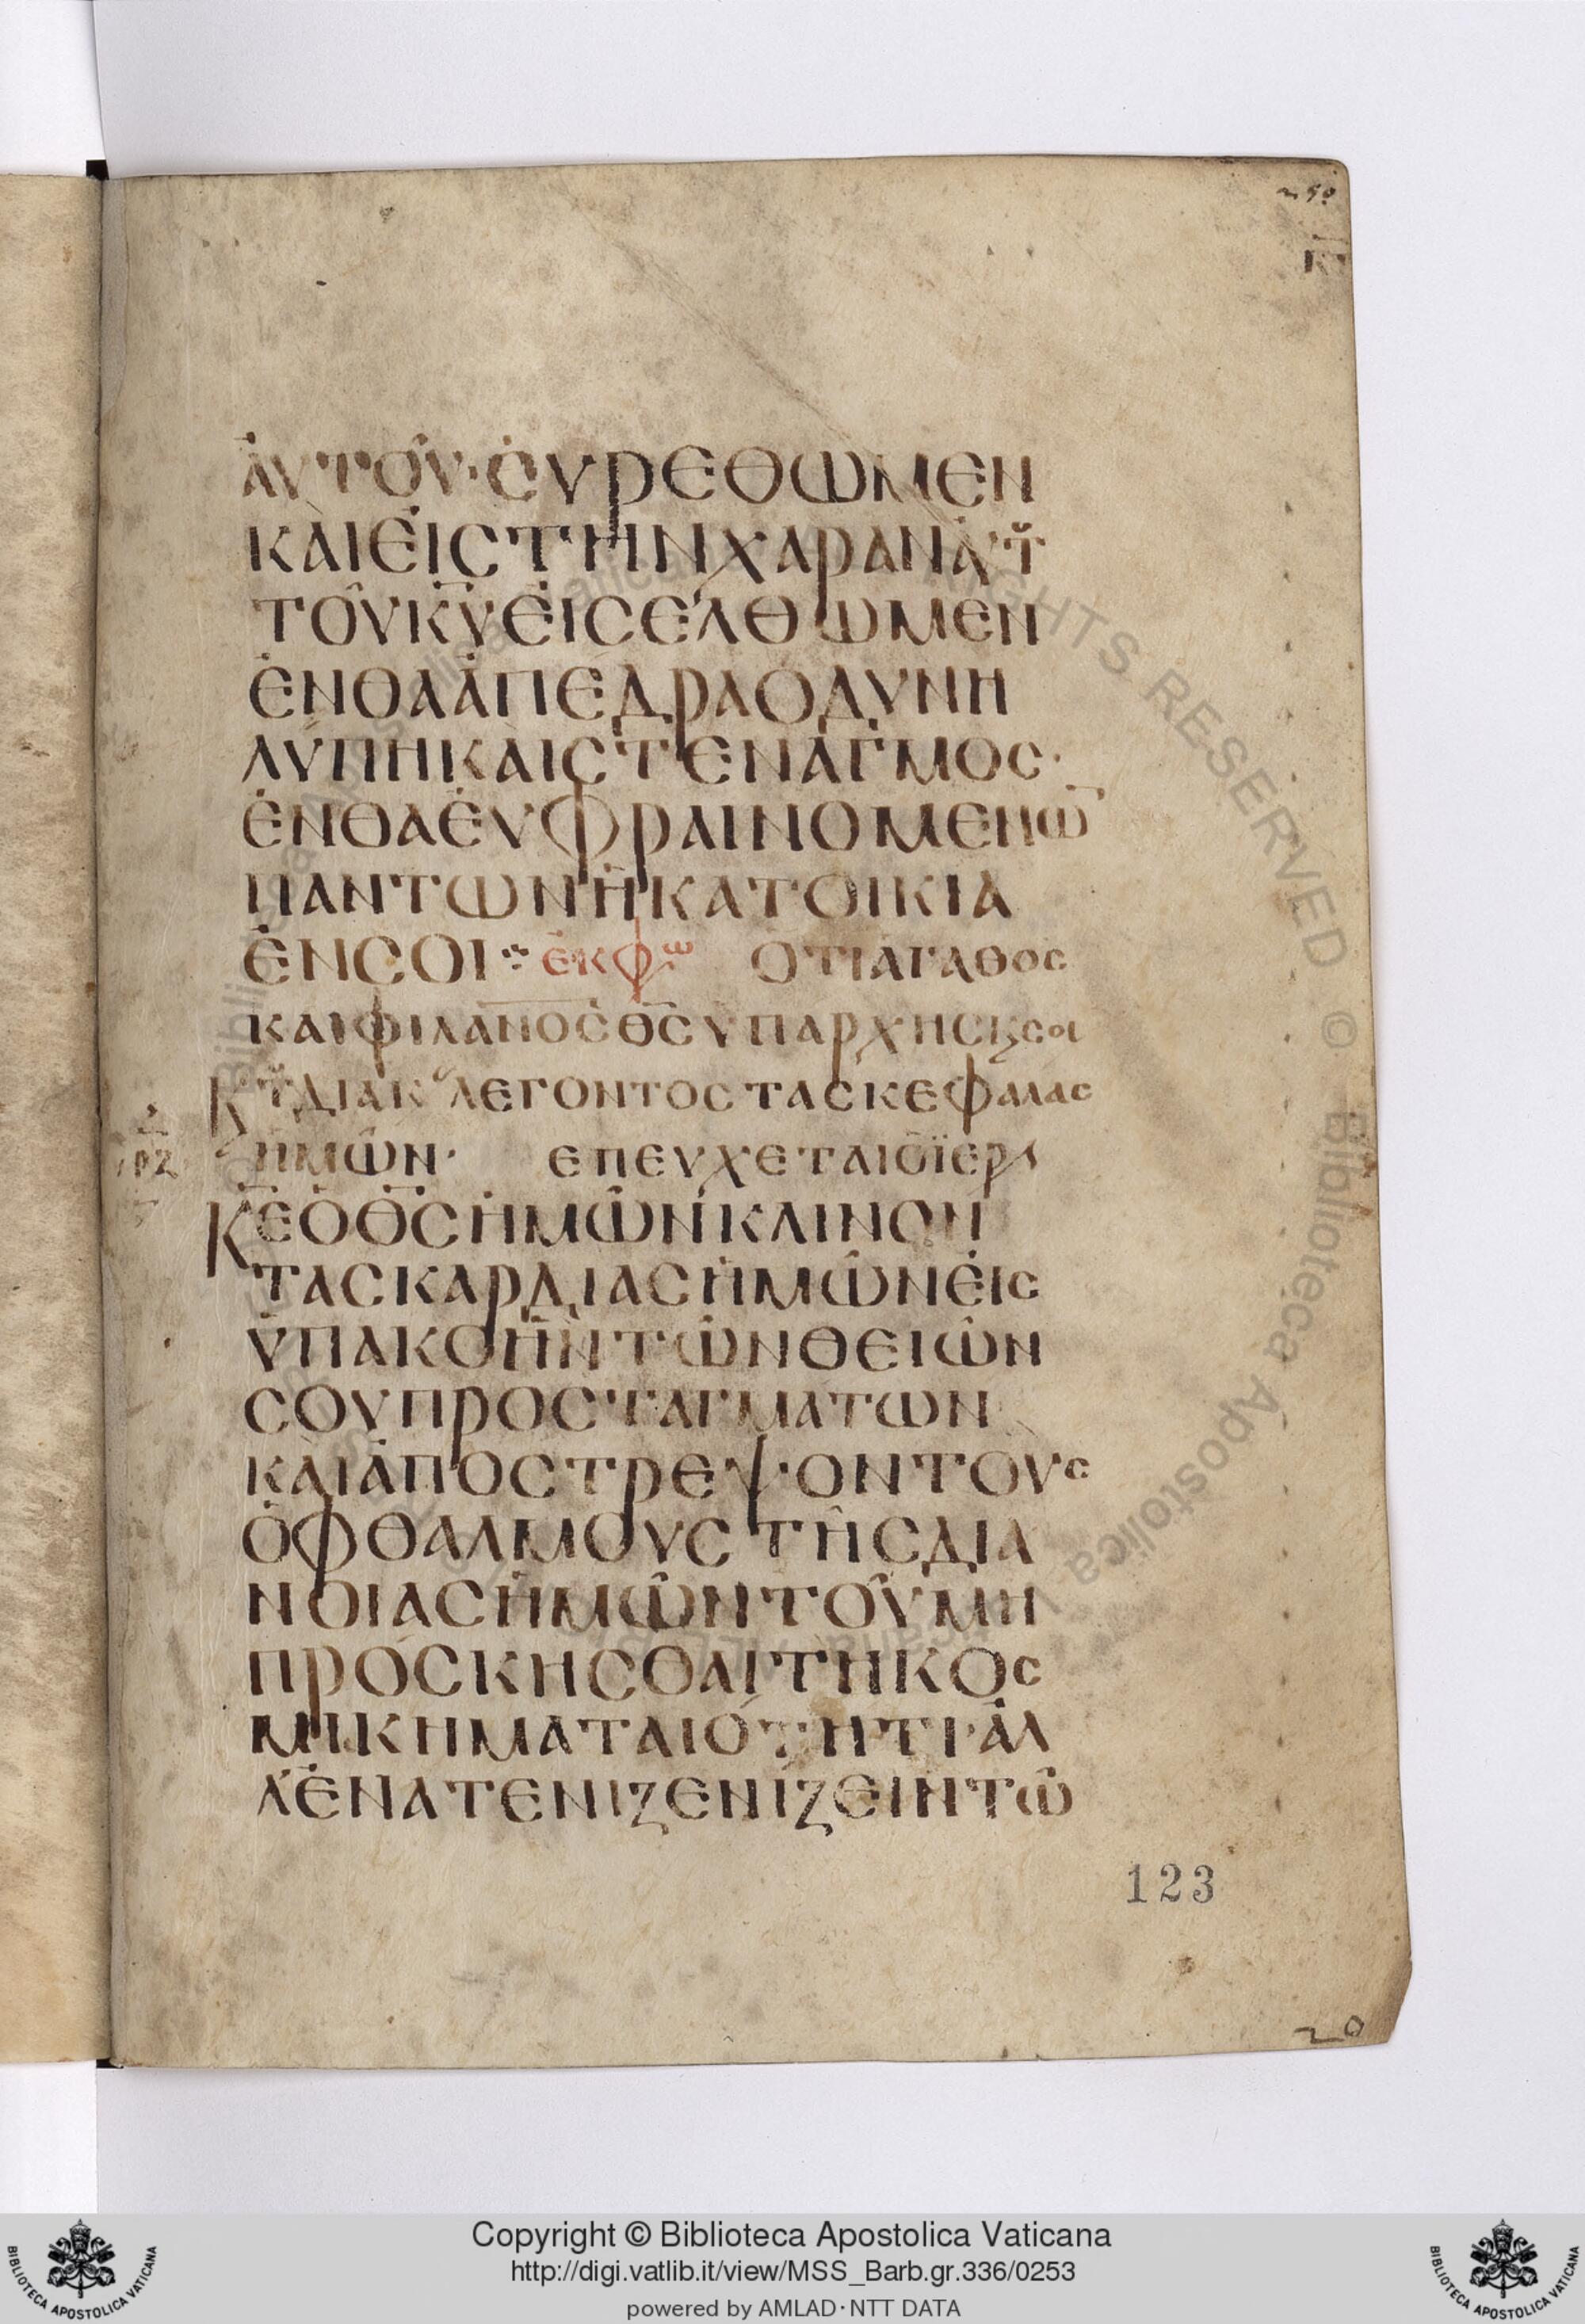 ν 50
ΚΓ
ἈΥΤΟῦ·ἘΥΡΕΘΩΜΕΝ
ΚΑΙΕἸCΤΗΝΧΑΡΑΝΑΥΤ
ΤΟῦΚ̅Υ̅ΕἸCΕΛΘΩΜΕΝ
ἘΝΘΑἈΠΕΔΡΑΟΔΥΝΗ
ΛΥΠΗΚΑΙCΤΕΝΑΓΜΟC·
ἘΝΘΑἘΥΦΡΑΙΝΟΜΕΝΩ̅
ΠΑΝΤΩΝἩΚΑΤΟΙΚΙΑ
ἘΝCΟΙ⁘ ἘΚΦω ὉΤΙΑΓΑΘΟC
ΚΑΙΦΙΛΑ̅Ν̅Ο̅C̅Θ̅C̅ΥΠΑΡΧΗCϗCΟΙ
ΚΤΔΙΑΚΛΕΓΟΝΤΟCΤΑCΚΕΦΑΛΑC
ἩΜῶΝ· ΕΠΕΥΧΕΤΑΙὁΪΕΡ
Κ̅Ε̅ὉΘ̅C̅ἩΜῶΝΚΛΙΝΟΝ
ΤΑCΚΑΡΔΙΑCἩΜῶΝΕἸC
ὙΠΑΚΟΗΝΤῶΝΘΕΙῶΝ
CΟΥΠΡΟCΤΑΓΜΑΤΩΝ
ΚΑΙἈΠΟCΤΡΕΨΟΝΤΟΥC
ὈΦΘΑΛΜΟΥCΤῆCΔΙΑ
ΝΟΙΑCἩΜῶΝΤΟῦΜΗ
ΠΡΟCΚΗCΘΑΙΤΗΚΟC
ΜΙΚΗΜΑΤΑΙΟΤΗΤΙ·ἈΛ
Λ'ἘΝΑΤΕΝΙΖΕΝΙΖΕΙΝΤῶ
123
20
Copyright © Biblioteca Apostolica Vaticana
http://digi.vatlib.it/view/MSS_Barb.gr.336/0253
powered by AMLAD·NTT DATA
BIBLIOTECA APOSTOLICA VATICANA
BIBLIOTECA APOSTOLICA VATICANA